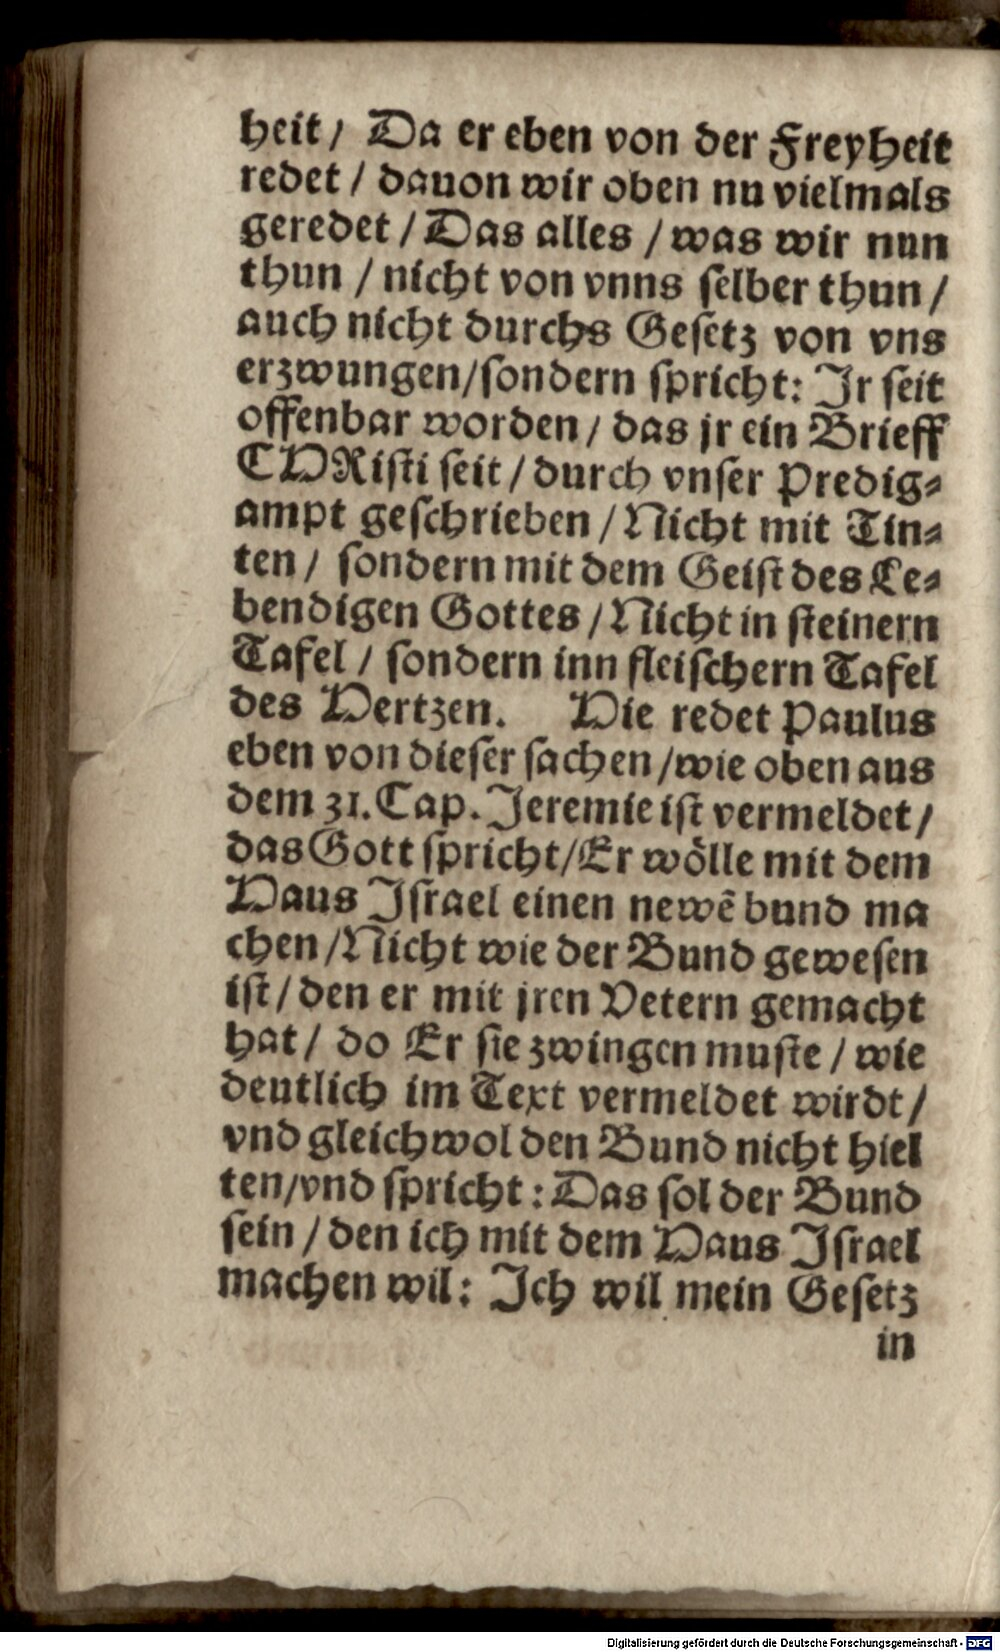 heit / Da er eben von der Freyheit
redet / dauon wir oben nu vielmals
geredet / Das alles / was wir nun
thun / nicht von vnns selber thun /
auch nicht durchs Gesetz von vns
erzwungen/sondern spricht: Jr seit
offenbar worden / das jr ein Brieff
CHRisti seit / durch vnser Predig⸗
ampt geschrieben / Nicht mit Tin⸗
ten / sondern mit dem Geist des Le⸗
bendigen Gottes / Nicht in steinern
Tafel / sondern inn fleischern Tafel
des Hertzen. Hie redet Paulus
eben von dieser sachen /wie oben aus
dem 31. Cap. Jeremie ist vermeldet /
das Gott spricht/Er wölle mit dem
Haus Israel einen newẽ bund ma
chen /Nicht wie der Bund gewesen
ist / den er mit jren Vetern gemacht
hat / do Er sie zwingen muste / wie
deutlich im Text vermeldet wirdt /
vnd gleichwol den Bund nicht hiel
ten/vnd spricht : Das sol der Bund
sein / den ich mit dem Haus Israel
machen wil : Ich wil mein Gesetz
in
Digitalisierung gefördert durch die Deutsche Forschungsgemeinschaft - DFG